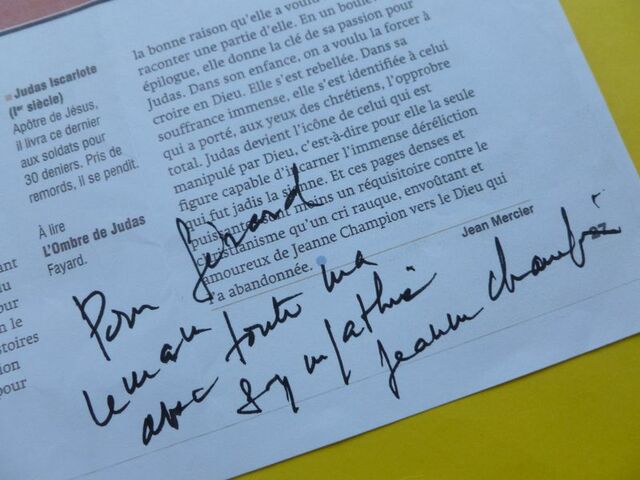 Judas Iscariote
(Ier siècle)
Apôtre de Jésus,
il livra ce dernier
aux soldats pour
30 deniers. Pris de
remords, il se pendit.
À lire
L'Ombre de Judas
Fayard.
la bonne raison qu'elle a voulu
raconter une partie d'elle. En un
épilogue, elle donne la clé de sa passion pour
Judas. Dans son enfance, on a voulu la forcer à
croire en Dieu. Elle s'est rebellée. Dans sa
souffrance immense, elle s'est identifiée à celui
qui a porté, aux yeux des chrétiens, l'opprobre
total. Judas devient l'icône de celui qui est
manipulé par Dieu, c'est-à-dire pour elle la seule
figure capable d'incarner l'immense déréliction
qui fut jadis la sienne. Et ces pages denses et
puissantes sont moins un réquisitoire contre le
christianisme qu'un cri rauque, envoûtant et
amoureux de Jeanne Champion vers le Dieu qui
l'a abandonnée.
Jean Mercier
27
Pour
toute ma
avec sympathie
Jeanne Champion